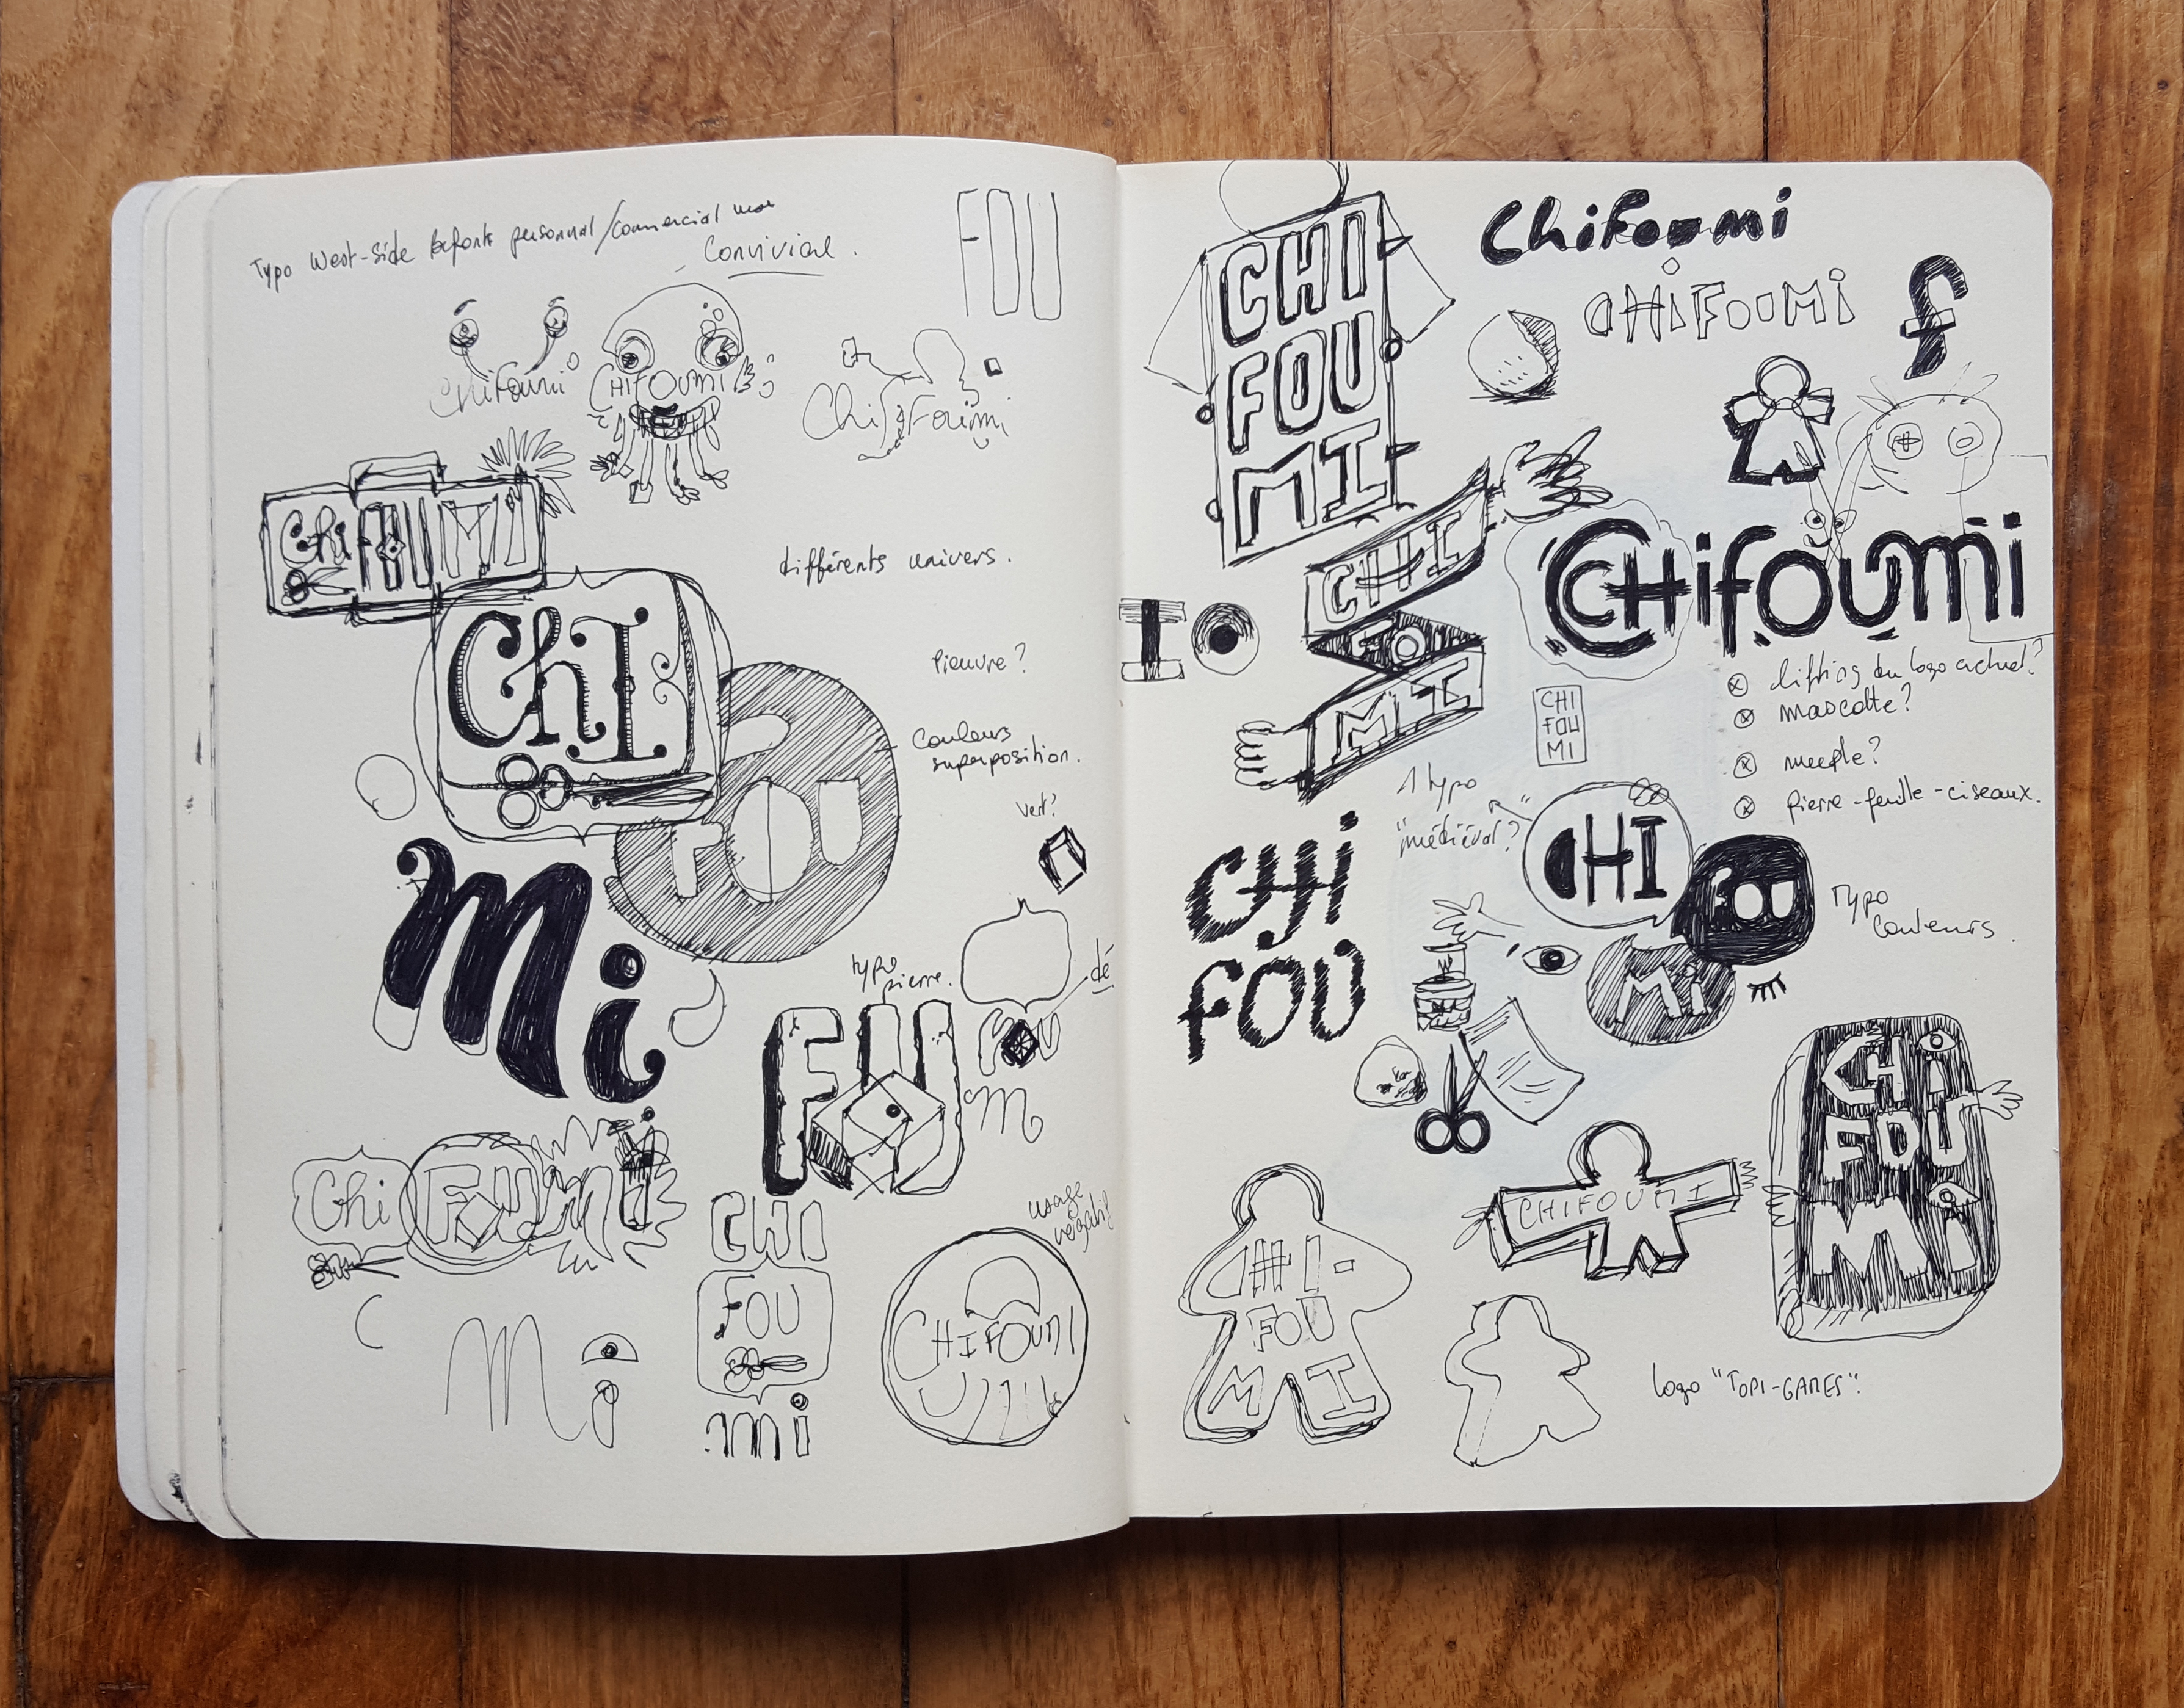 Typo West-Side
personnal/commercial
Convivial.
FOU
Chifoumi
CHIFOUMI
Chifoumi
Chi FOU MI
différents univers.
ChI
pieuvre?
Couleurs
superposition.
FOU
vert?
Mi
typo
pierre.
dé
FOU
FOU
m
Chi FOU mi
CHI
FOU
mi
usage
C
Mi
CHIFOUMI
CHI
FOU
MI
Chifoumi
CHiFOUMi
f
CHI
FOU
MI
I
CHifoumi
lifting du logo actuel?
mascotte?
meeple?
pierre-feuille-ciseaux.
CHI
FOU
MI
1 typo
"médiéval"?
CHI
FOU
Mi
Typo
Couleurs.
CHi
FOU
CHi
FOU
Mi
CHIFOUMI
CHI
FOU
MI
logo "TOPI-GAMES".